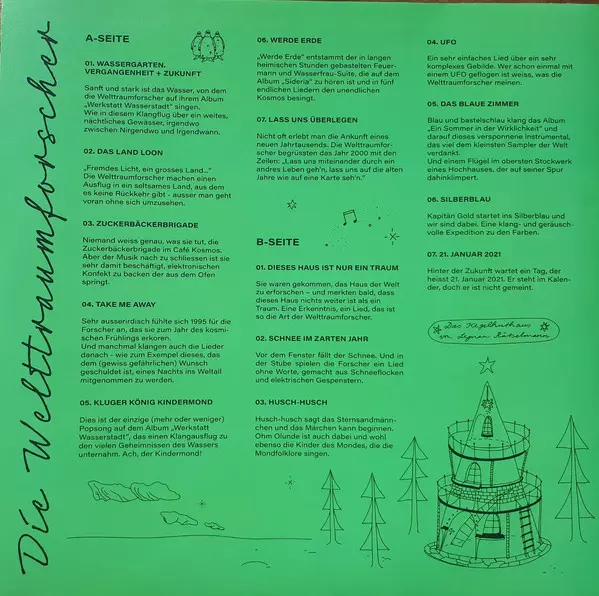 Die Welttraumforscher
A-SEITE
01. WASSERGARTEN.
VERGANGENHEIT + ZUKUNFT
Sanft und stark ist das Wasser, von dem
die Welttraumforscher auf ihrem Album
„Werkstatt Wasserstadt" singen.
Wie in diesem Klangflug über ein weites,
nächtliches Gewässer, irgendwo
zwischen Nirgendwo und Irgendwann.
02. DAS LAND LOON
„Fremdes Licht, ein grosses Land..."
Die Welttraumforscher machen einen
Ausflug in ein seltsames Land, aus dem
es keine Rückkehr gibt - ausser man geht
voran ohne sich umzusehen.
03. ZUCKERBÄCKERBRIGADE
Niemand weiss genau, was sie tut, die
Zuckerbäckerbrigade im Café Kosmos.
Aber der Musik nach zu schliessen ist sie
sehr damit beschäftigt, elektronischen
Konfekt zu backen der aus dem Ofen
springt.
04. TAKE ME AWAY
Sehr ausserirdisch fühlte sich 1995 für die
Forscher an, das sie zum Jahr des kosmi-
schen Frühlings erkoren.
Und manchmal klangen auch die Lieder
danach - wie zum Exempel dieses, das
dem (gewiss gefährlichen) Wunsch
geschuldet ist, eines Nachts ins Weltall
mitgenommen zu werden.
05. KLUGER KÖNIG KINDERMOND
Dies ist der einzige (mehr oder weniger)
Popsong auf dem Album „Werkstatt
Wasserstadt", das einen Klangausflug zu
den vielen Geheimnissen des Wassers
unternahm. Ach, der Kindermond!
06. WERDE ERDE
„Werde Erde" entstammt der in langen
heimischen Stunden gebastelten Feuer-
mann und Wasserfrau-Suite, die auf dem
Album „Sideria" zu hören ist und in fünf
endlichen Liedern den unendlichen
Kosmos besingt.
07. LASS UNS ÜBERLEGEN
Nicht oft erlebt man die Ankunft eines
neuen Jahrtausends. Die Welttraumfor-
scher begrüssten das Jahr 2000 mit den
Zeilen: „Lass uns miteinander durch ein
andres Leben geh'n, lass uns auf die alten
Jahre wie auf eine Karte seh'n."
B-SEITE
01. DIESES HAUS IST NUR EIN TRAUM
Sie waren gekommen, das Haus der Welt
zu erforschen – und merkten bald, dass
dieses Haus nichts weiter ist als ein
Traum. Eine Erkenntnis, ein Lied, das ist
so die Art der Welttraumforscher.
02. SCHNEE IM ZARTEN JAHR
Vor dem Fenster fällt der Schnee. Und in
der Stube spielen die Forscher ein Lied
ohne Worte, gemacht aus Schneeflocken
und elektrischen Gespenstern.
03. HUSCH-HUSCH
Husch-husch sagt das Sternsandmänn-
chen und das Märchen kann beginnen.
Ohm Olunde ist auch dabei und wohl
ebenso die Kinder des Mondes, die die
Mondfolklore singen.
04. UFO
Ein sehr einfaches Lied über ein sehr
komplexes Gebilde. Wer schon einmal mit
einem UFO geflogen ist weiss, was die
Welttraumforscher meinen.
05. DAS BLAUE ZIMMER
Blau und bastelschlau klang das Album
„Ein Sommer in der Wirklichkeit" und
darauf dieses versponnene Instrumental,
das viel dem kleinsten Sampler der Welt
verdankt.
Und einem Flügel im obersten Stockwerk
eines Hochhauses, der auf seiner Spur
dahinklimpert.
06. SILBERBLAU
Kapitän Gold startet ins Silberblau und
wir sind dabei. Eine klang- und geräusch-
volle Expedition zu den Farben.
07. 21. JANUAR 2021
Hinter der Zukunft wartet ein Tag, der
heisst 21. Januar 2021. Er steht im Kalen-
der, doch er ist nicht gemeint.
Das Kegelhuthaus
im Rätselmoor